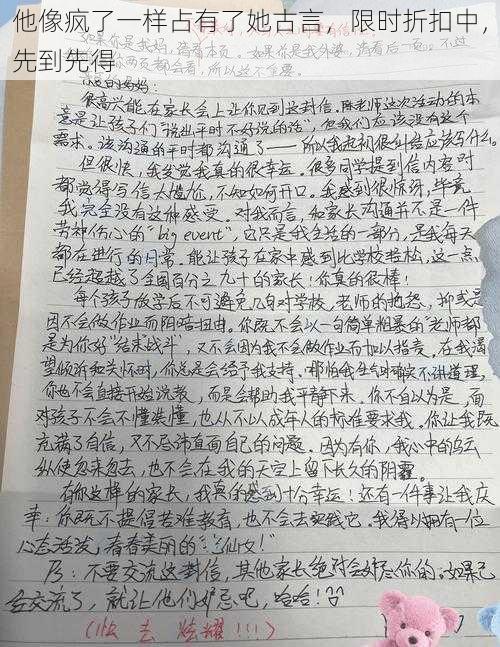 他像疯了一样占有了她古言，限时折扣中，
先到先得
如果你是我妈，请看本页。如果你是我外婆，请看后一页。不过
你们两页都会看，所以这不重要。
亲爱的妈妈：
很高兴能在家长会上让你见到这封信。陈老师这次活动的本
意是让孩子们“说出平时不好说的话”，但我们应该没有这个
需求。该沟通的平时都沟通了——所以我起初很纠结应该写什么。
但很快，我发觉我真的很幸运。很多同学提到信内容时
都觉得写信太尴尬，不知如何开口。我感到很惊讶，毕竟
我完全没有这种感受。对我而言，和家长沟通并不是一件
劳神伤心的“big event”，它只是我生活的一部分，是我每天
都在进行的日常。能让孩子在家中感到比学校轻松，这一点
已经超越了全国百分之九十的家长！你真的很棒！
每个孩子放学后不可避免几句对学校、老师的抱怨，抑或是
因不会做作业而阴暗扭曲。你既不会以一句简单粗暴的“老师都
是为你好”结束战斗，又不会因为我不会做作业而加以指责。在我渴
望倾诉和关怀时，你总是会给予我支持。哪怕我生气时确实不讲道理，
你也不会直接开始说教，而是会帮助我平静下来。你不自以为是，面
对孩子不会不懂装懂，也从不以成年人的标准要求我。你让我既
充满了自信，又不忌讳直面自己的问题。因为有你，我心中的乌云
纵使忽来忽去，也不会在我的天空上留下长久的阴霾。
有你这样的家长，我真的感到十分幸运！还有一件事让我庆
幸：你既不提倡苦难教育，也不会去实践它。我得以拥有一位
心态活泼，青春美丽的“仙女！”
PS：不要交流这封信，其他家长绝对会妒忌你的。如果已
经交流了，就让他们妒忌吧，哈哈！
（快去炫耀!!!）